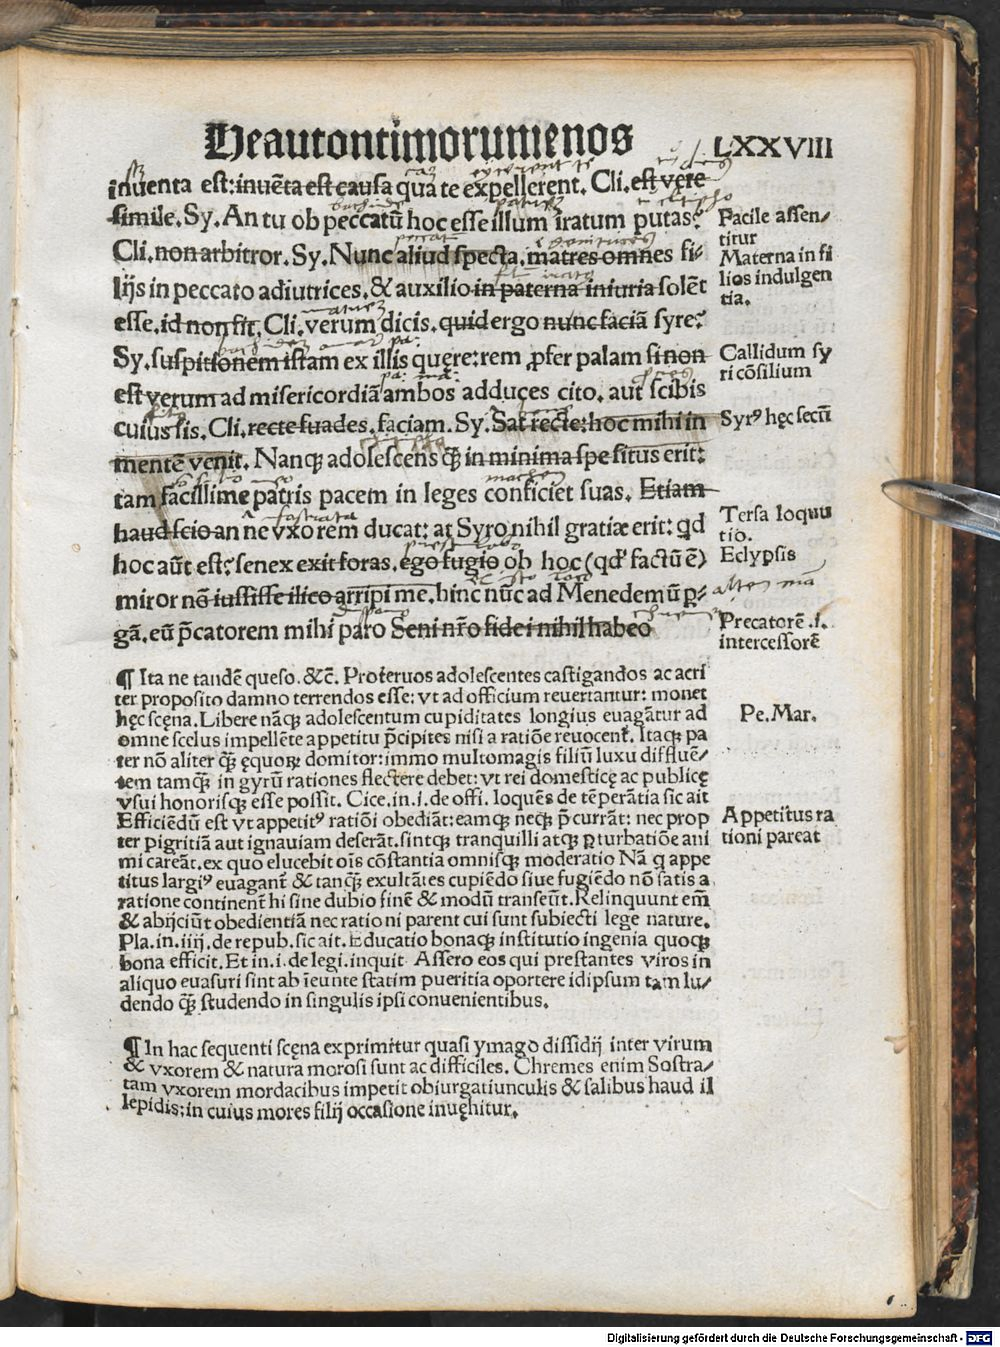 Heautontimorumenos LXXVIII
inuenta est: inuēta est causa qua te expellerent. Cli. est vere
simile. Sy. An tu ob peccatū hoc esse illum iratum putas?
Cli. non arbitror. Sy. Nunc aliud specta. matres omnes fi/
lijs in peccato adiutrices. & auxilio in paterna iniuria solēt
esse. id non fit. Cli. verum dicis. quid ergo nunc faciā syre?
Sy. suspitionem istam ex illis quęre: rem ꝓfer palam si non
est verum ad misericordiā ambos adduces cito. aut scibis
cuius sis. Cli. recte suades. faciam. Sy. Sat recte: hoc mihi in
mentē venit. Nanqꝫ adolescens qꝫ̄ in minima spe situs erit:
tam facillime patris pacem in leges conficiet suas. Etiam
haud scio an ne vxorem ducat: at Syro nihil gratiæ erit: qd
hoc aūt est? senex exit foras. ego fugio ob hoc (qd' factū ē)
miror nō iussisse ilico arripi me. hinc nūc ad Menedemū p̱
gā. eū p̄catorem mihi paro Seni nr̄o fidei nihil habeo
Facile assen/
titur
Materna in fi
lios indulgen
tia.
Callidum sy
ri cōsilium
Syrꝰ hęc secū
Tersa loquu
tio.
Eclypsis
Precatorē .i.
intercessorē
¶ Ita ne tandē queso. &c̄. Proteruos adolescentes castigandos ac acri
ter proposito damno terrendos esse: vt ad officium reuertantur: monet
hęc scęna. Libere nāqꝫ adolescentum cupiditates longius euagātur ad
omne scelus impellēte appetitu p̄cipites nisi a ratiōe reuocent̄. Itaqꝫ pa
ter nō aliter qꝫ̄ ęquoꝝ domitor: immo multomagis filiū luxu diffluē/
tem tamqꝫ̄ in gyrū rationes flectere debet: vt rei domesticę ac publicę
vsui honorisqꝫ esse possit. Cice. in .i. de offi. loquēs de tēperātia sic ait
Efficiēdū est vt appetitꝰ ratiōi obediāt: eamqꝫ neqꝫ p̄currāt: nec prop
ter pigritiā aut ignauiam deserāt. sintqꝫ tranquilli atqꝫ ꝑturbatiōe ani
mi careāt. ex quo elucebit oīs cōstantia omnisqꝫ moderatio Nā q appe
titus largiꝰ euagant̄ & tanqꝫ̄ exultātes cupiēdo siue fugiēdo nō satis a
ratione continent̄ hi sine dubio finē & modū transeūt. Relinquunt em̄
& abijciūt obedientiā nec rationi parent cui sunt subiecti lege nature.
Pla. in. iiij. de repub. sic ait. Educatio bonaqꝫ institutio ingenia quoqꝫ
bona efficit. Et in .i. de legi. inquit Assero eos qui prestantes viros in
aliquo euasuri sint ab īeunte statim pueritia oportere id ipsum tam lu/
dendo qꝫ̄ studendo in singulis ipsi conuenientibus.
Pe. Mar.
Appetitus ra
tioni pareat
¶ In hac sequenti scęna exprimitur quasi ymago dissidij inter virum
& vxorem & natura morosi sunt ac difficiles. Chremes enim Sostra/
tam vxorem mordacibus impetit obiurgatiunculis & salibus haud il
lepidis: in cuius mores filij occasione inuęhitur.
Digitalisierung gefördert durch die Deutsche Forschungsgemeinschaft - DFG